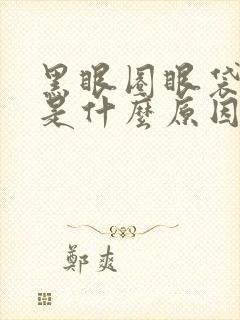 黑眼圈眼袋
是什麼原因
鄭爽